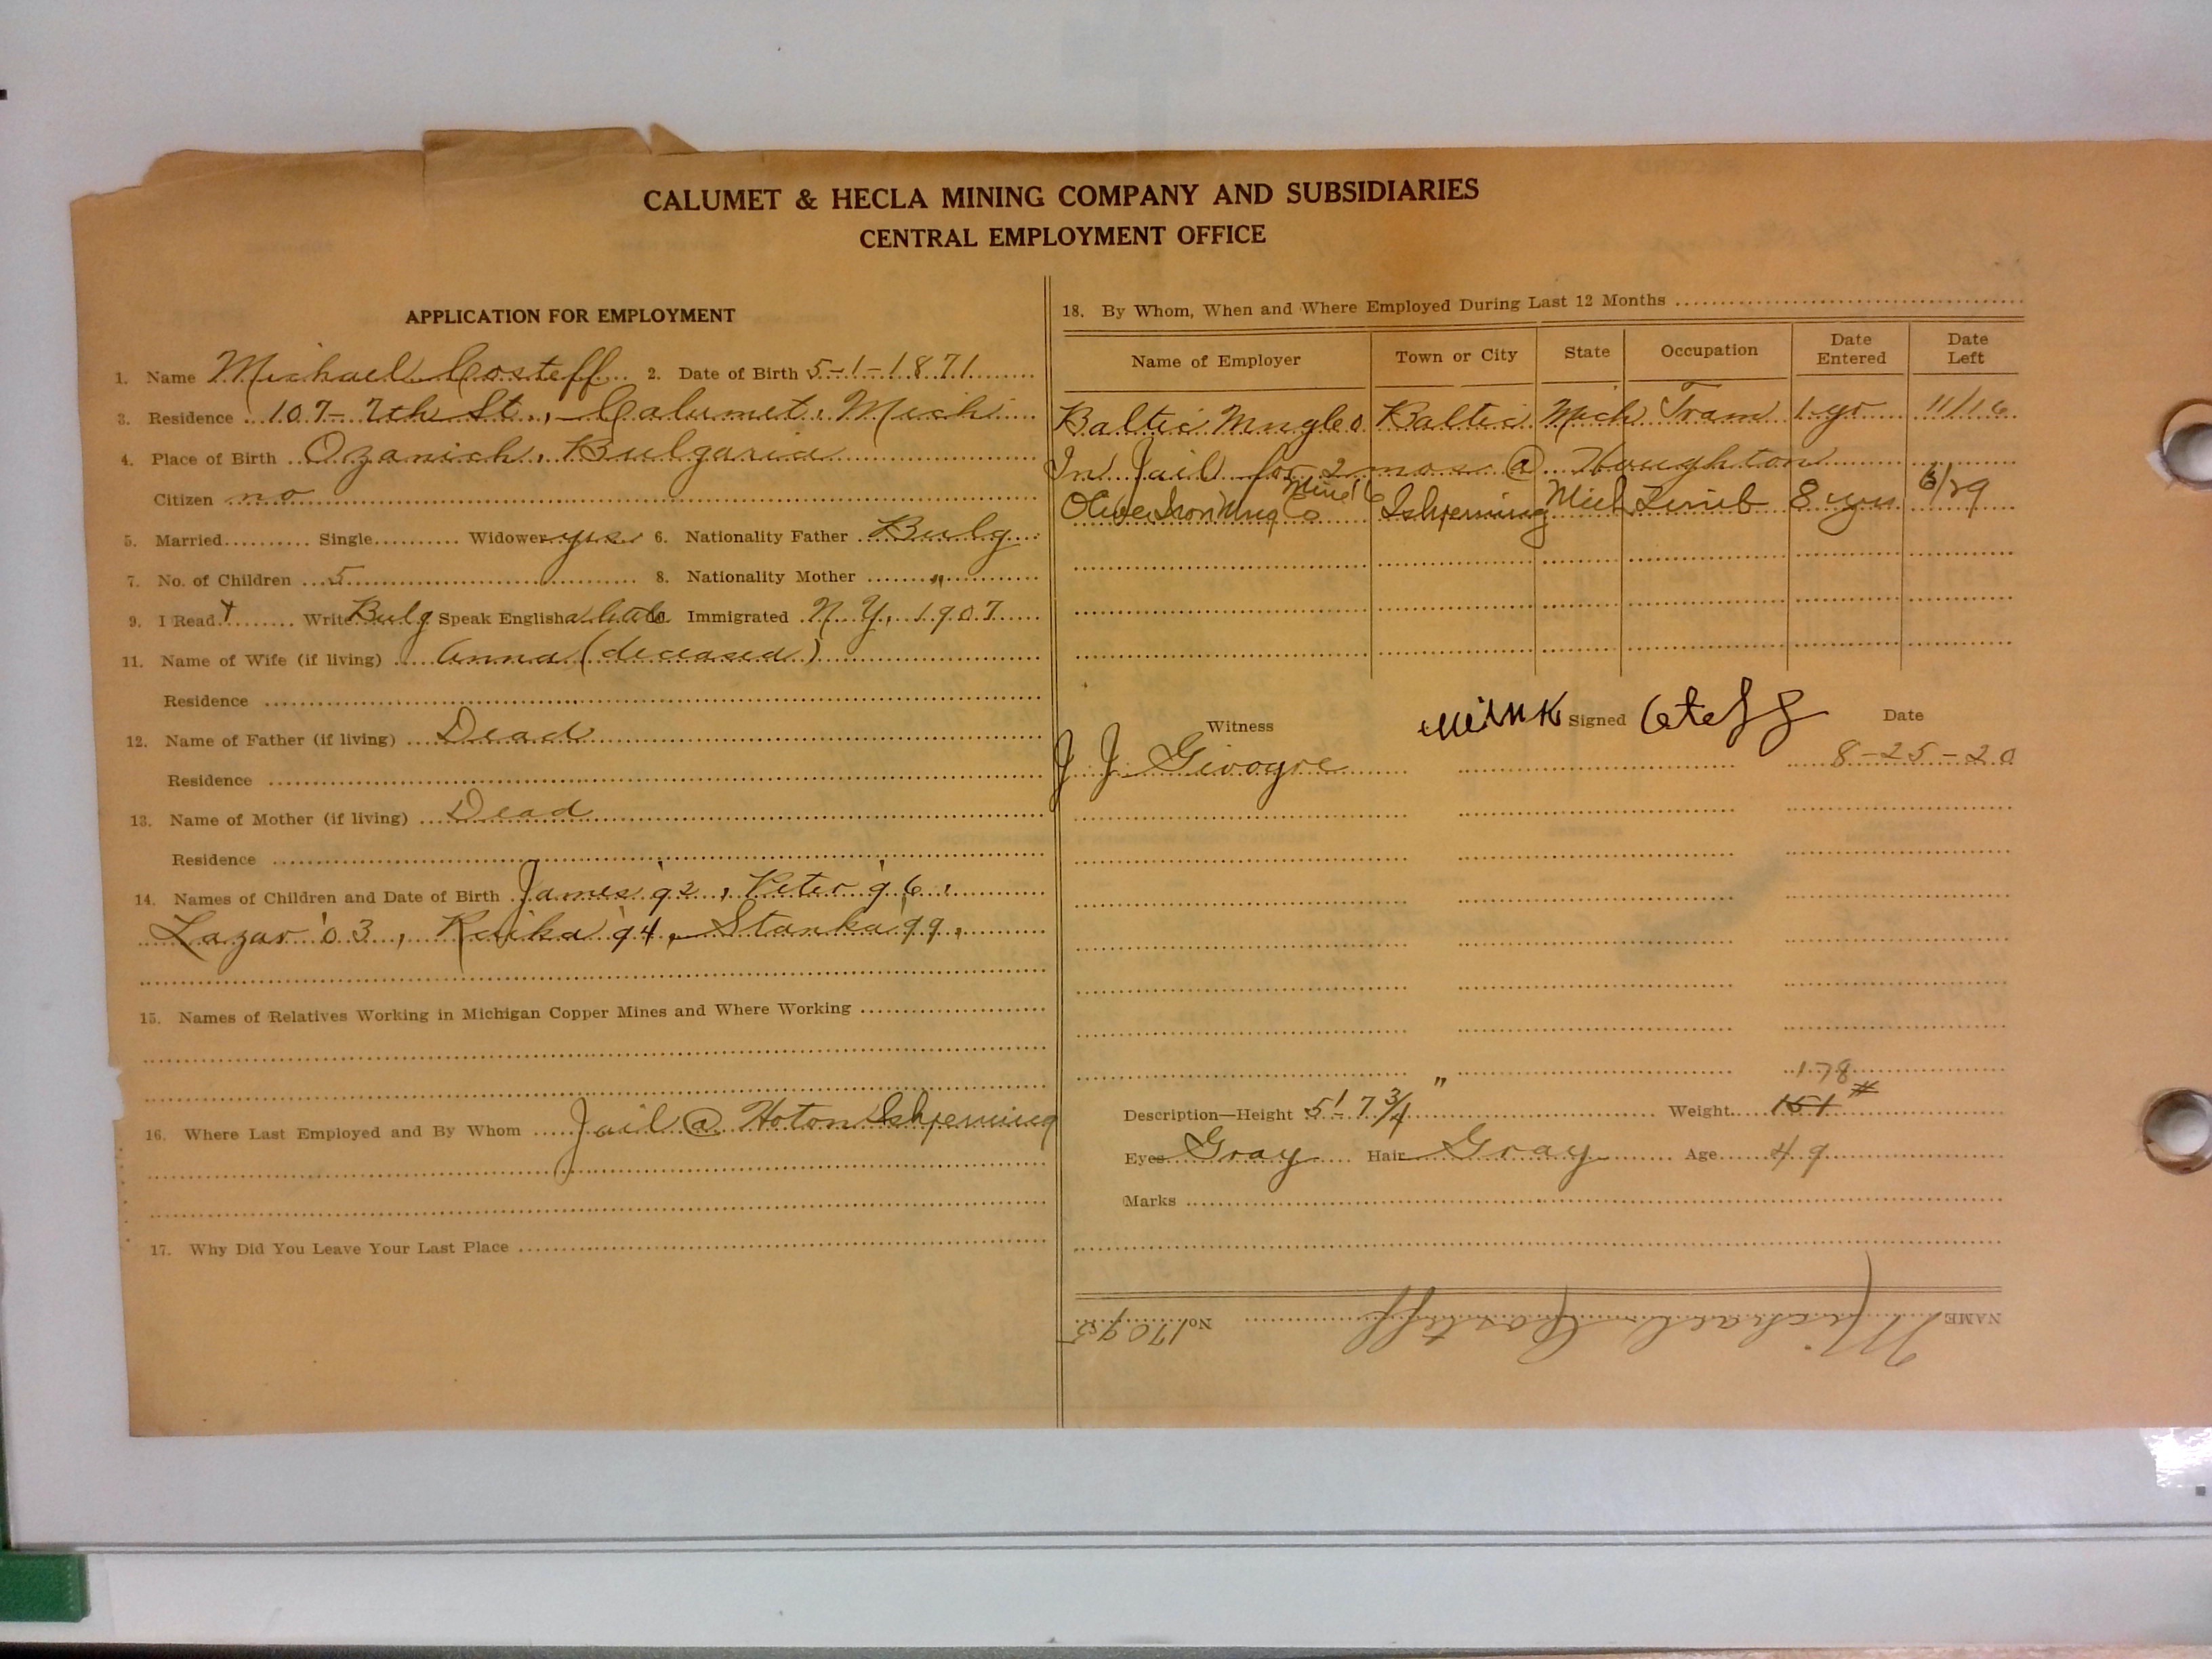 CALUMET & HECLA MINING COMPANY AND SUBSIDIARIES
CENTRAL EMPLOYMENT OFFICE
APPLICATION FOR EMPLOYMENT
1. Name Michael Costeff 2. Date of Birth 5-1-1871
3. Residence 107-7th St., Calumet, Mich
4. Place of Birth Ozanich, Bulgaria
Citizen no
5. Married Single Widower yes 6. Nationality Father Bulg
7. No. of Children 5 8. Nationality Mother "
9. I Read + Write Bulg Speak English a little Immigrated N.Y. 1907
11. Name of Wife (if living) Anna (deceased)
Residence
12. Name of Father (if living) Dead
Residence
13. Name of Mother (if living) Dead
Residence
14. Names of Children and Date of Birth James '92, Peter '96,
Lazar '03, Raika '94, Stanka '99,
15. Names of Relatives Working in Michigan Copper Mines and Where Working
16. Where Last Employed and By Whom Jail @ Hoton Ishpeming
17. Why Did You Leave Your Last Place
18. By Whom, When and Where Employed During Last 12 Months
Name of Employer Town or City State Occupation Date Entered Date Left
Baltic Mng Co Baltic Mich Tram 1 yr 11/16
In Jail for 2 mos @ Houghton
Oliver Iron Mng Co Ishpeming Mich 8 yrs 6/29
Witness Signed Date
J J 8-25-20
178
Description—Height 5'-7 3/4" Weight 151 #
Eyes Gray Hair Gray Age 49
Marks
NAME Michael Costeff No. 17095